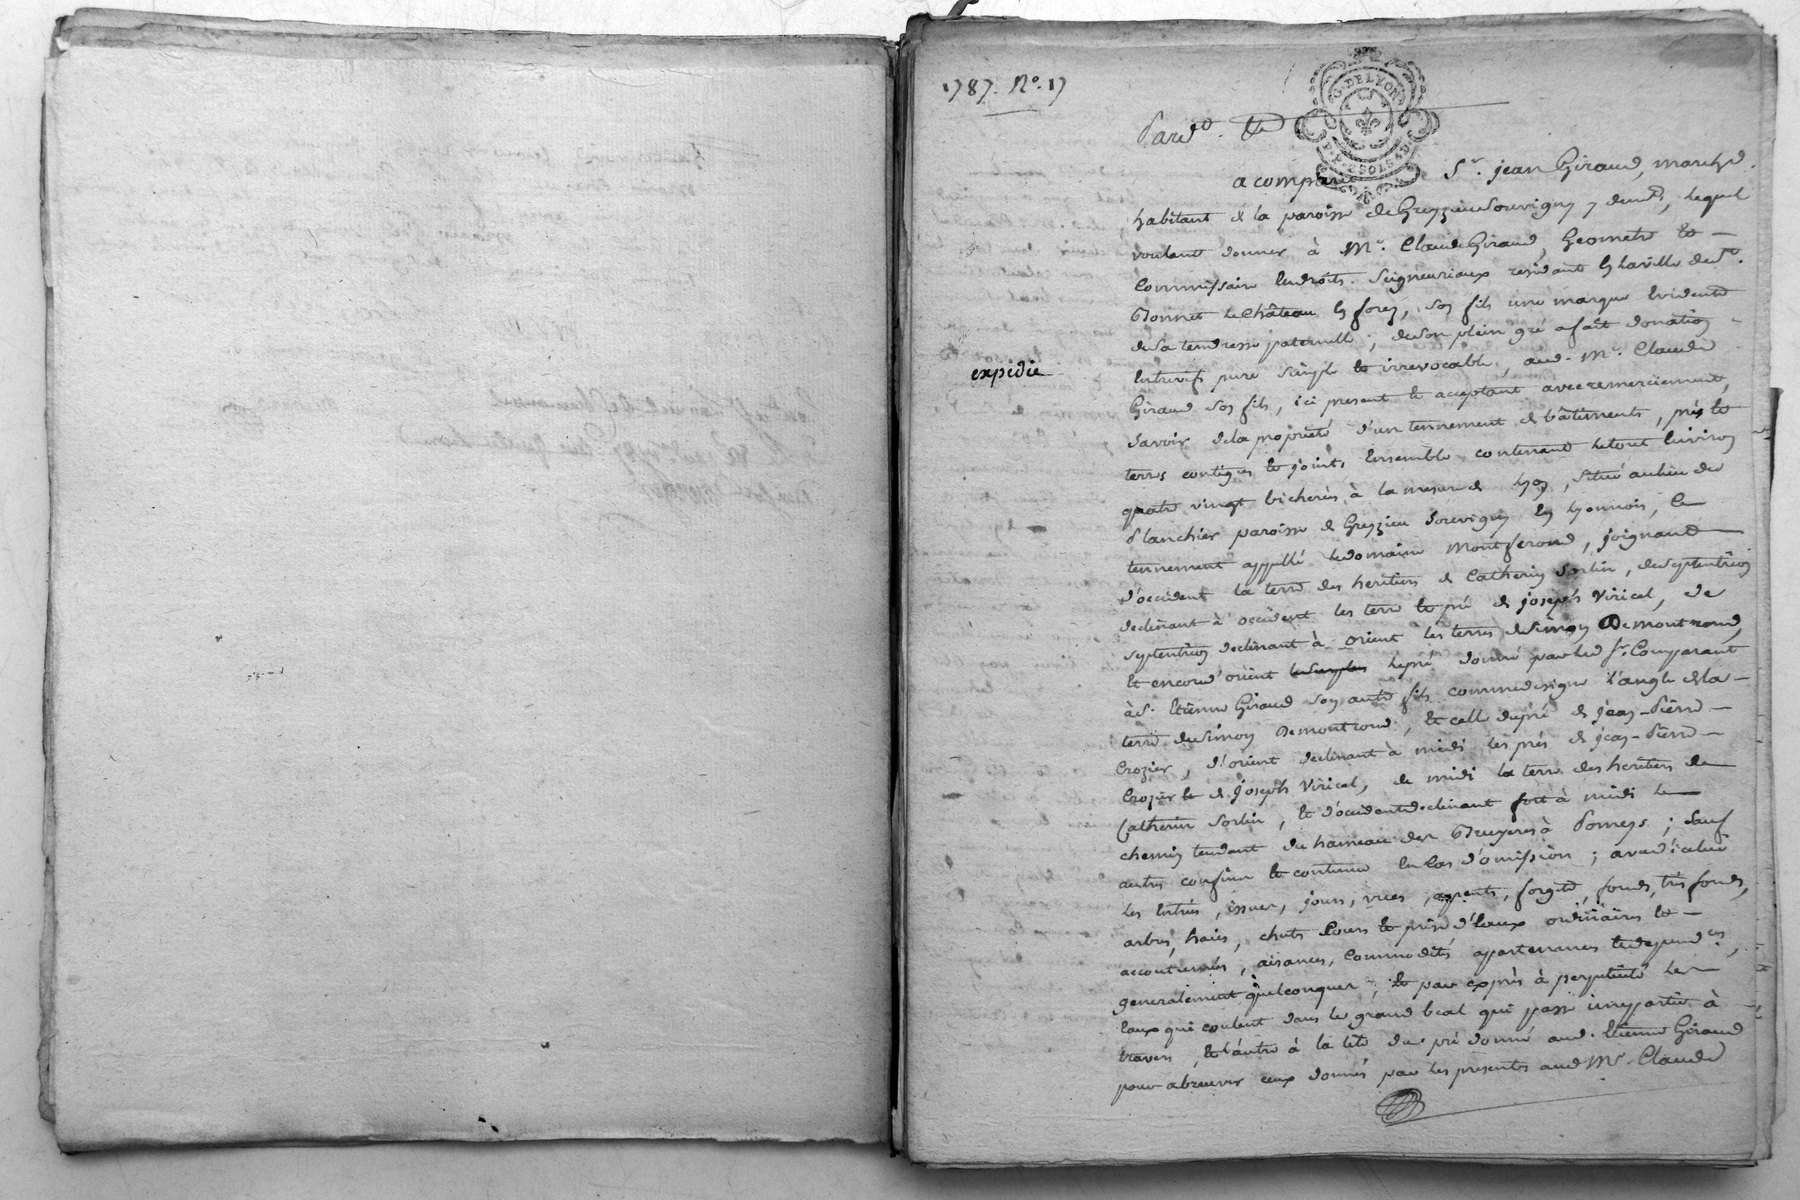 1787. N°. 17
G. DE LYON
2 SOLS 4 D.
Pard.
a comparu Sr. jean Giraud, marchd.
habitant de la paroisse de Greyzieu Souvigny, lequel
voulant donner à Mr. Claude Giraud, Geometre et
Commissaire endroits Seigneuriaux residant en la ville de St.
Bonnet le Château en forez, son fils une marque Evidente
de sa tendresse paternelle, de son plein gré a fait donation
Entrevifs pure simple et irrevocable, aud. Mr. Claude
expedié
Giraud son fils, ici present et acceptant avec remerciement,
Savoir de la proprieté d'un tennement de bâtiments, prés et
terres contigus et joints Ensemble contenant le tout Environ
quatre vingt bicherées à la mesure de Lyon, Situé au lieu du
Planchier paroisse de Greyzieu Souvigny en Lyonnois, le
tennement appellé le domaine Montferond, joignant
d'occident la terre des heritiers de Catherin Sorlin, de septentrion
declinant à occident les terre et pré de joseph Viricel, de
septentrion declinant à orient les terres de Simon Demontrond,
et encore d'orient le pré donné par led. Sr. Comparant
à S. Etienne Giraud son autre fils comme designe l'angle de la
terre de Simon Demontrond, et celle du pré de jean-Pierre
Crozier, d'orient declinant à midi les prés de jean-Pierre
Crozier et de joseph Viricel, de midi la terre des heritiers de
Catherin Sorlin, et d'occident declinant fort à midi le
chemin tendant du hameau des Bruyeres à Pomeys; sauf
autres confins et contenue en cas d'omission; avec d'icelui
les Entrées, issues, jours, vues, fonds, tres fonds,
arbres, haies, chute Cours et prise d'Eaux ordinaires et
accoutumées, aisances, Commodités appartenances et dependces,
generalement quelconques, et par exprès à perpetuité les
Eaux qui coulent dans le grand beal qui passe en partie à
travers, et l'autre à la tete du pré donné aud. Etienne Giraud
pour abreuver ceux donnés par les presentes aud. Mr. Claude